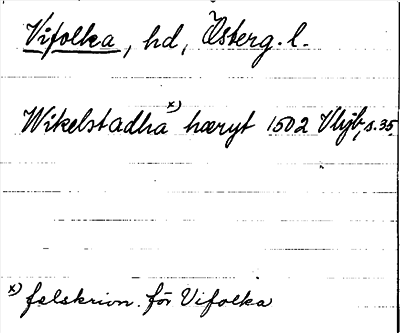 Vifolka, hd, Österg. l.
Wikelstadha x) hæryt 1502 Vlijb, s. 35
x) felskrivn. för Vifolka